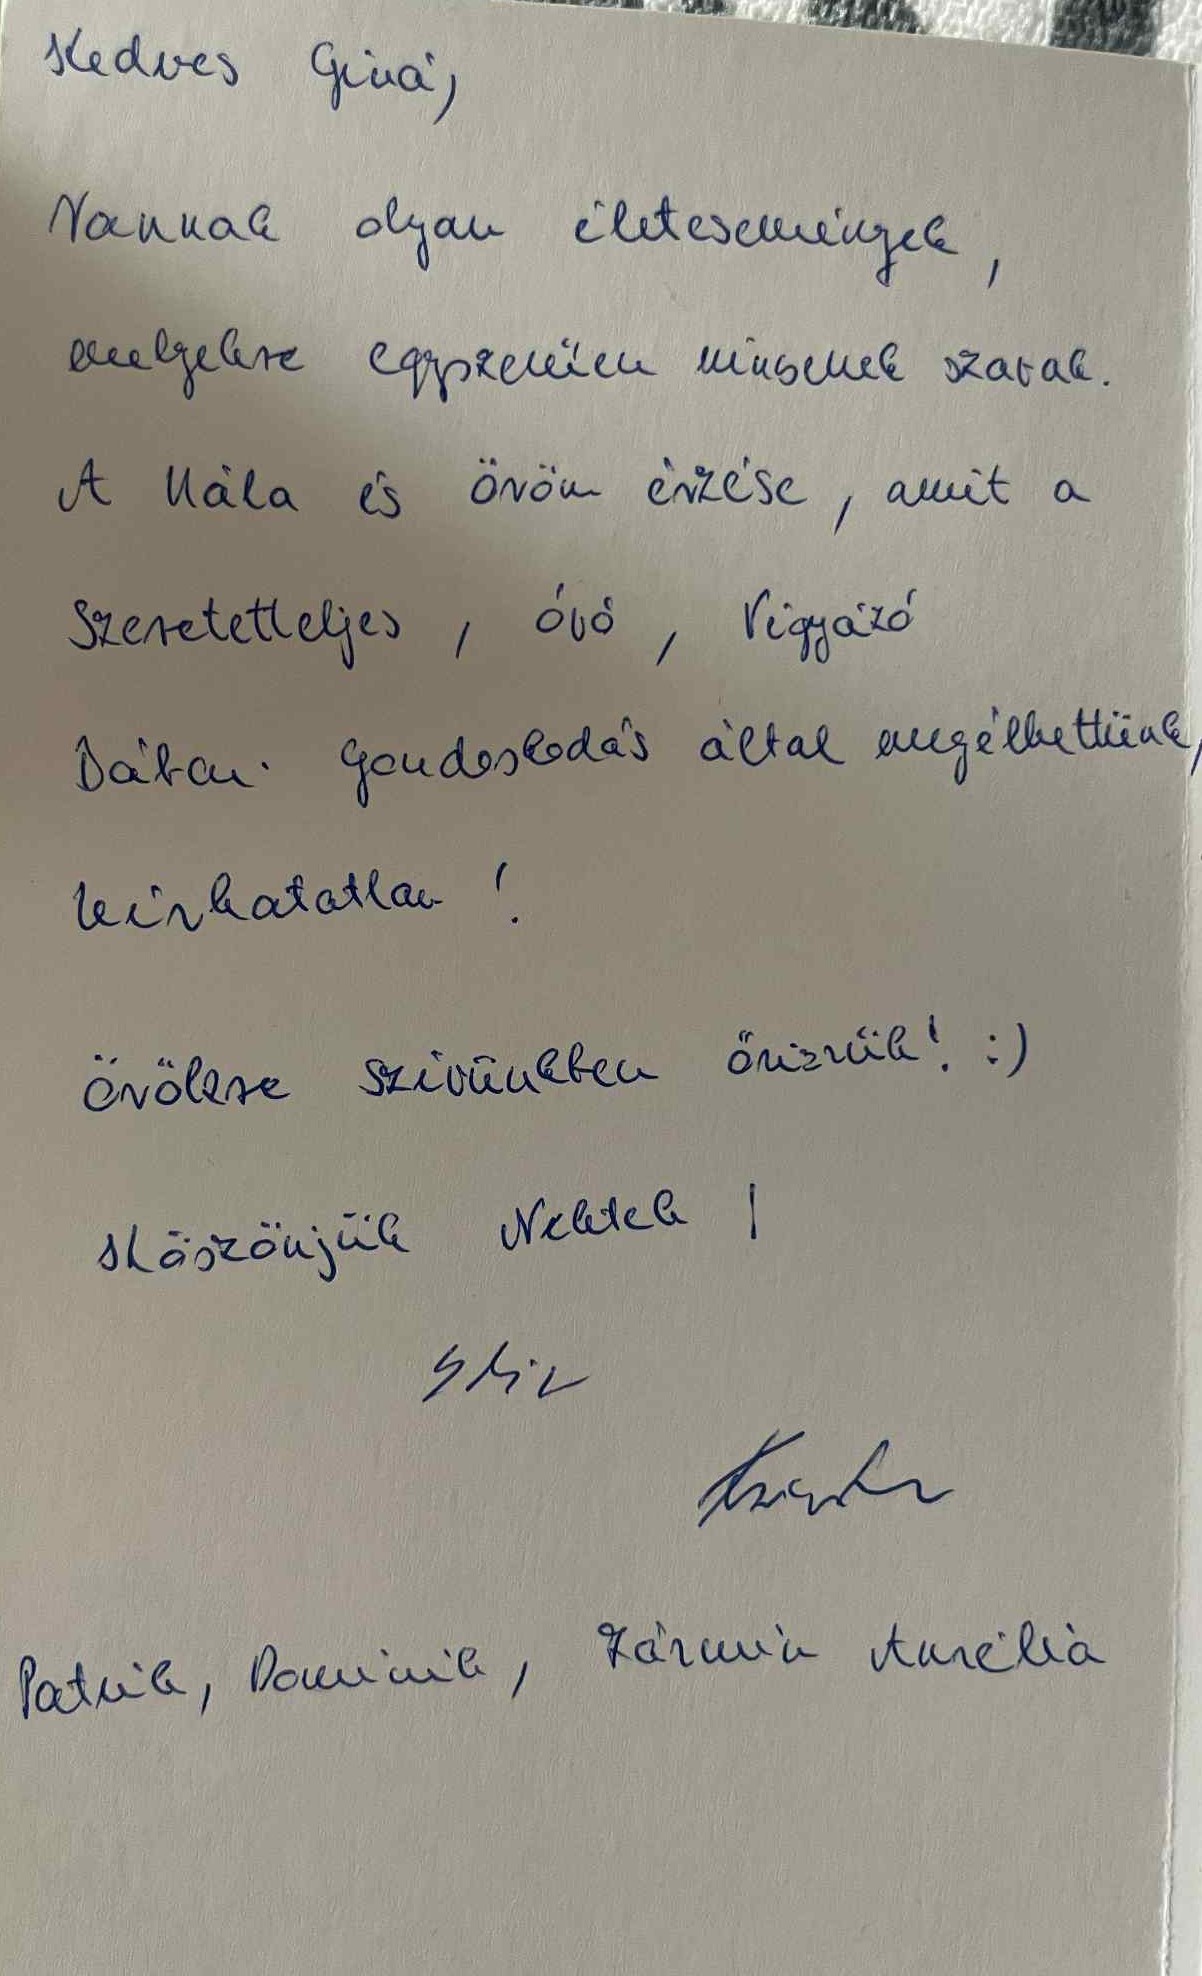 Kedves Gina,
Vannak olyan életesemények,
melyekre egyszerűen nincsenek szavak.
A Hála és öröm érzése, amit a
Szeretetteljes, óvó, Vigyázó
Bátor gondoskodás által megélhettünk,
leírhatatlan!
örökre szívünkben őrizzük! :)
Köszönjük Nektek!
Patrik, Dominik, Zármin Aurélia